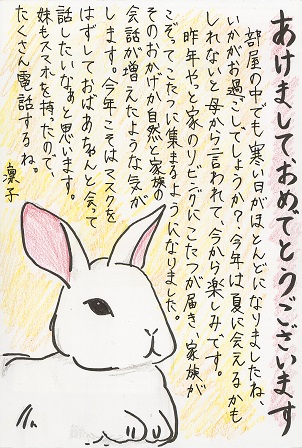 あけましておめでとうございます
部屋の中でも寒い日がほとんどになりましたね、
いかがお過ごしでしょうか？今年は夏に会えるかも
しれないと母から言われて、今から楽しみです。
昨年やと家のリビングにこたつが届き、家族が
こぞってこたつに集まるようになりました。
そのおかげか自然と家族の
会話が増えたような気が
します。今年こそはマスクを
はずしておばあちゃんと会って
話したいなぁと思います。
妹もスマホを持ったので、
たくさん電話するね。
凛子